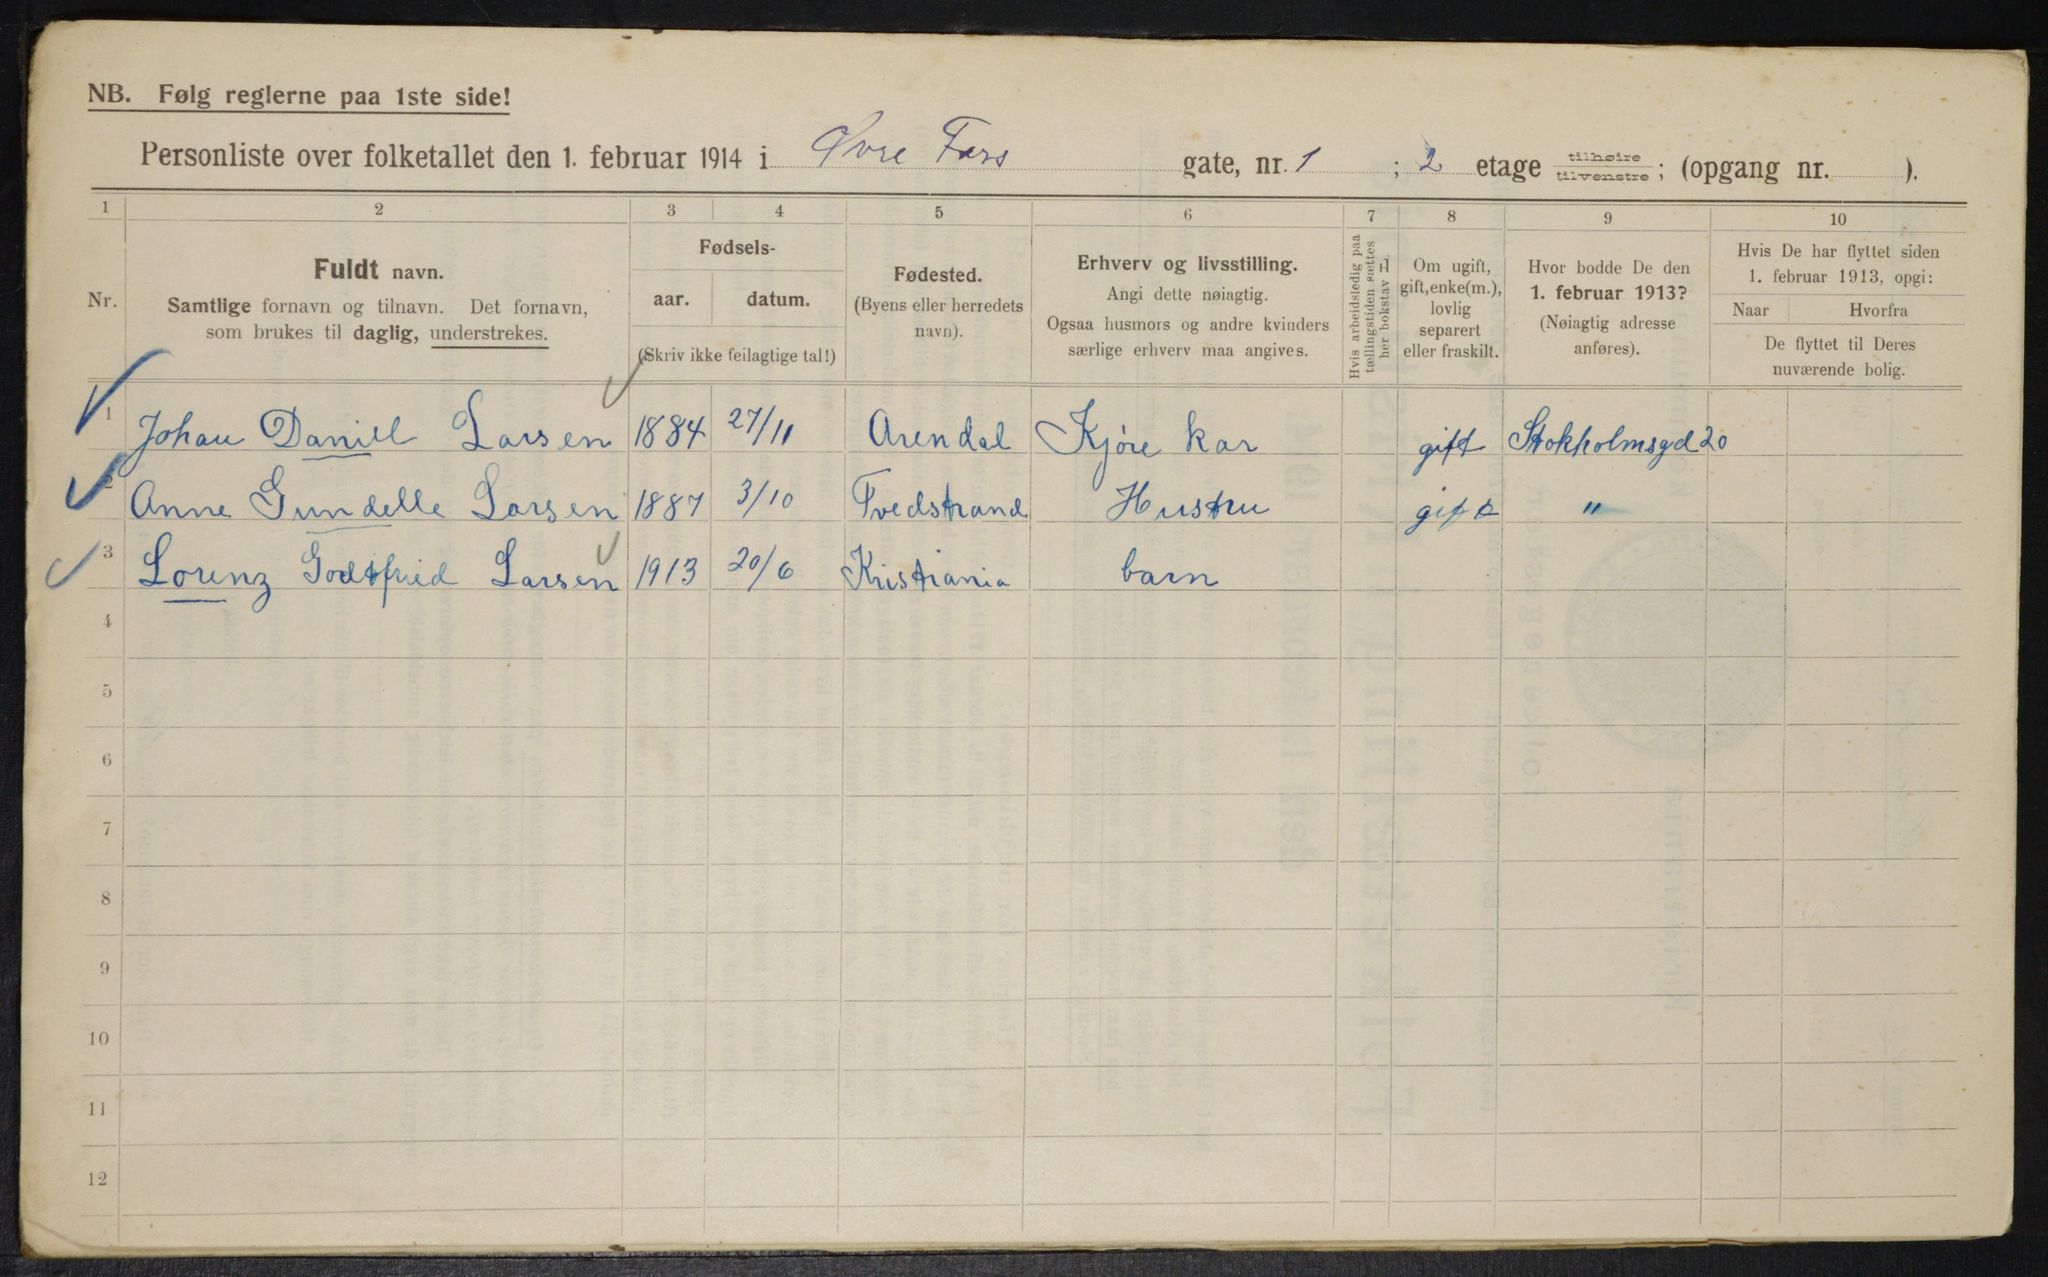 NB. Følg reglerne paa 1ste side!
Personliste over folketallet den 1. februar 1914 i Øvre Foss gate, nr. 1 ; 2 etage tilhøire tilvenstre ; (opgang nr. ).
1 2 3 4 5 6 7 8 9 10
Nr.
Fuldt navn.
Samtlige fornavn og tilnavn. Det fornavn,
som brukes til daglig, understrekes.
Fødsels-
aar. datum.
(Skriv ikke feilagtige tal!)
Fødested.
(Byens eller herredets
navn).
Erhverv og livsstilling.
Angi dette nøiagtig.
Ogsaa husmors og andre kvinders
særlige erhverv maa angives.
Hvis arbeidsledig paa
tællingstiden sættes
her bokstav L.
Om ugift,
gift, enke(m.),
lovlig
separert
eller fraskilt.
Hvor bodde De den
1. februar 1913?
(Nøiagtig adresse
anføres).
Hvis De har flyttet siden
1. februar 1913, opgi:
Naar Hvorfra
De flyttet til Deres
nuværende bolig.
1 Johan Daniel Larsen 1884 27/11 Arendal Kjøre kar gift Stokholmsgd 20
2 Anne Gundelle Larsen 1887 3/10 Tvedstrand Hustru gift "
3 Lorenz Godtfried Larsen 1913 20/6 Kristiania barn
4
5
6
7
8
9
10
11
12